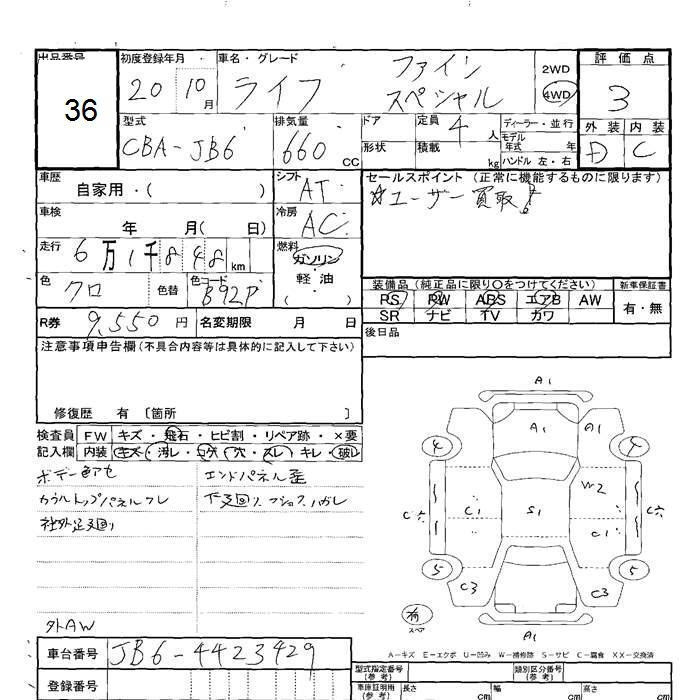 出品番号
36
初度登録年月
車名・グレード
20 10月
ライフ
ファイン
スペシャル
2WD
4WD
評価点
3
型式
排気量
CBA-JB6
660 CC
ドア
形状
定員
4 人
積載
kg
ディーラー・並行
モデル年式 年
ハンドル 左・右
外装
内装
D
C
車歴
自家用・( )
シフト
AT
車検
年 月( 日)
冷房
AC
走行
6万1千848km
燃料
ガソリン・
軽油・
( )
色
クロ
色替
色コード
B92P
R券
9,550円
名変期限 月 日
セールスポイント (正常に機能するものに限ります)
☆ユーザー買取!
装備品(純正品に限り○をつけてください)
新車保証書
PS PW ABS エアB AW
SR ナビ TV カワ
有・無
後日品
注意事項申告欄(不具合内容等は具体的に記入して下さい)
修復歴 有 〔箇所 〕
検査員
記入欄
FW キズ・飛石・ヒビ割・リペア跡・×要
内装 キズ・汚レ・コゲ・穴・スレ・キレ・破レ
ボデー色アセ
カウルトップパネルワレ
社外足廻り
エンドパネル歪
下廻り
外AW
車台番号
JB6-4423429
登録番号
A1
A1
A1
4
4
W2
C1
S1
C1
5
5
C3
C3
A1
スペア
A-キズ E-エクボ U-凹み W-補修跡 S-サビ C-腐食 XX-交換済
型式指定番号
(参考)
類別区分番号
(参考)
車庫証明用
(参考)
長さ cm
幅 cm
高さ cm